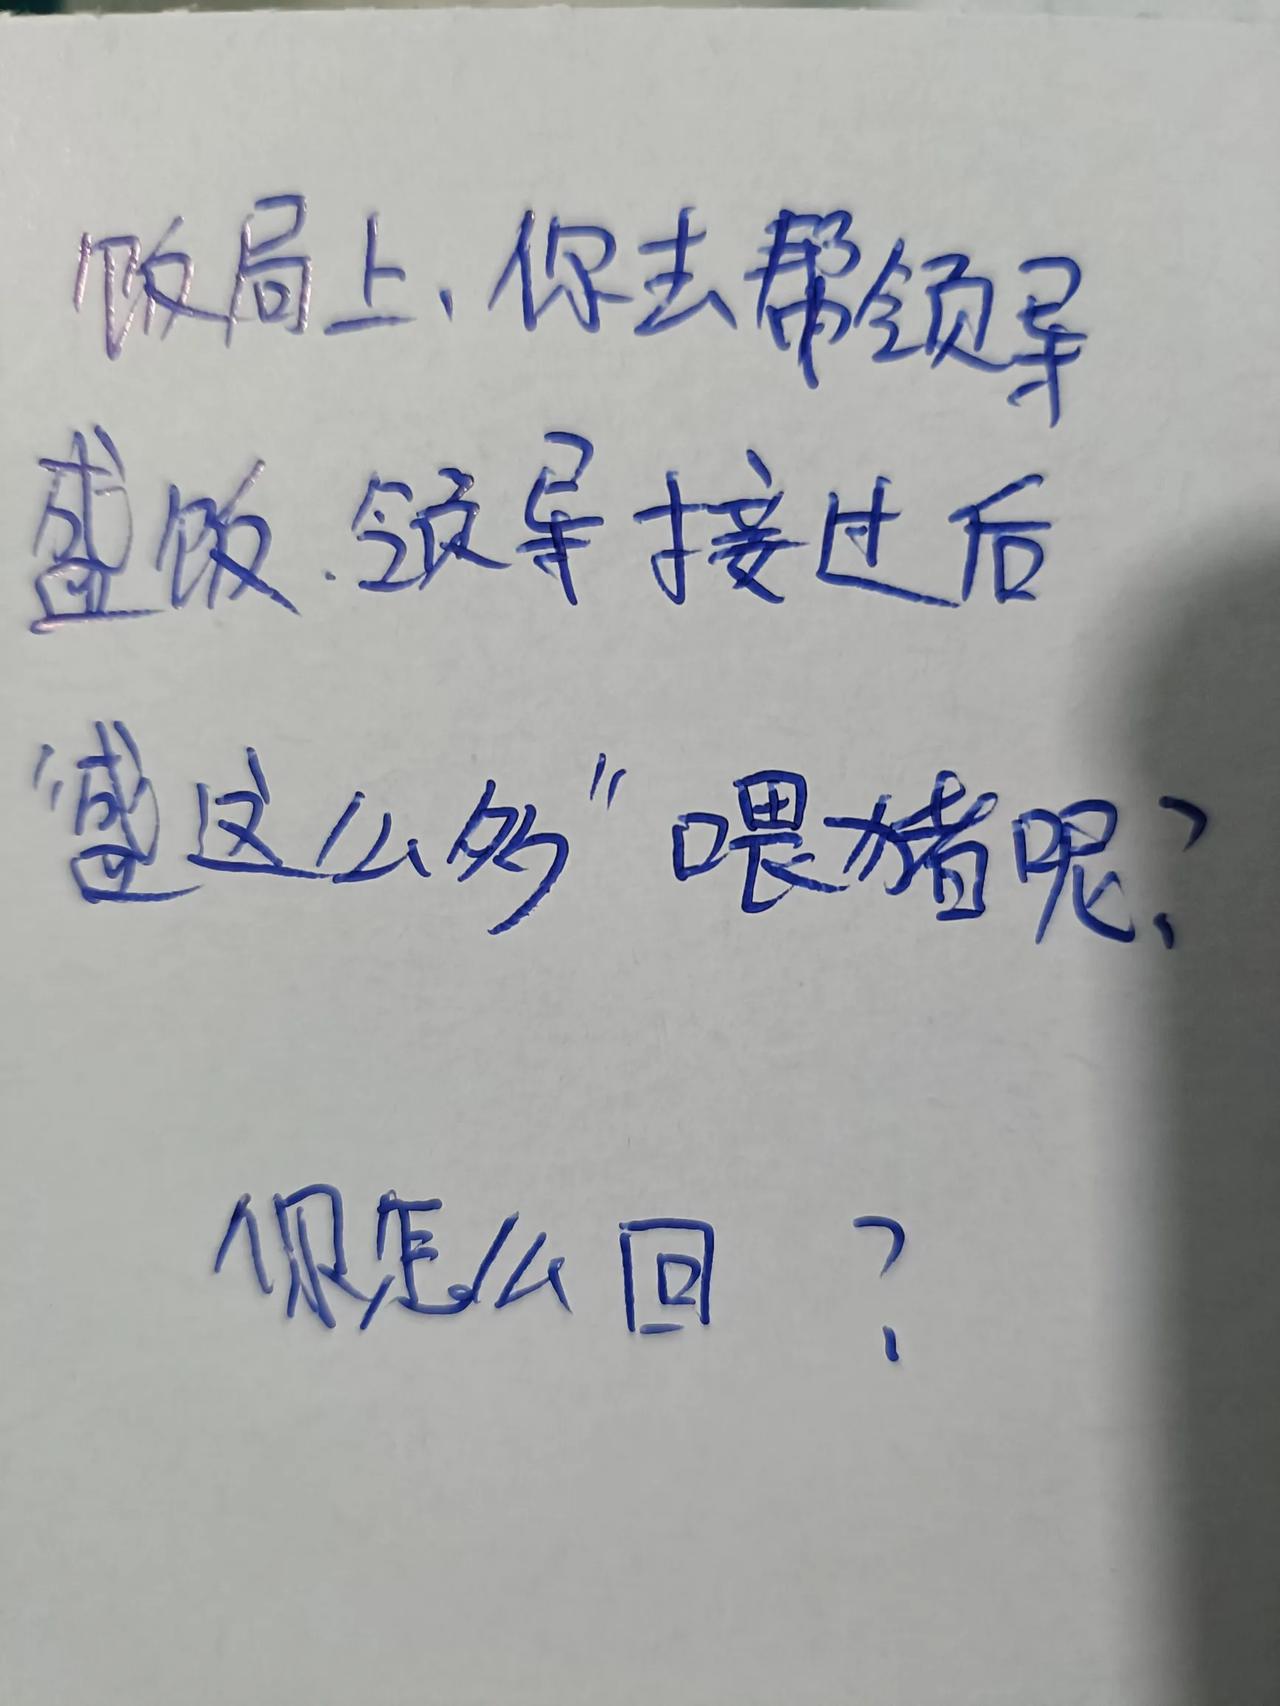 饭局上、你去帮领导
盛饭.领导接过后
"盛这么多"喂猪呢?
你怎么回?